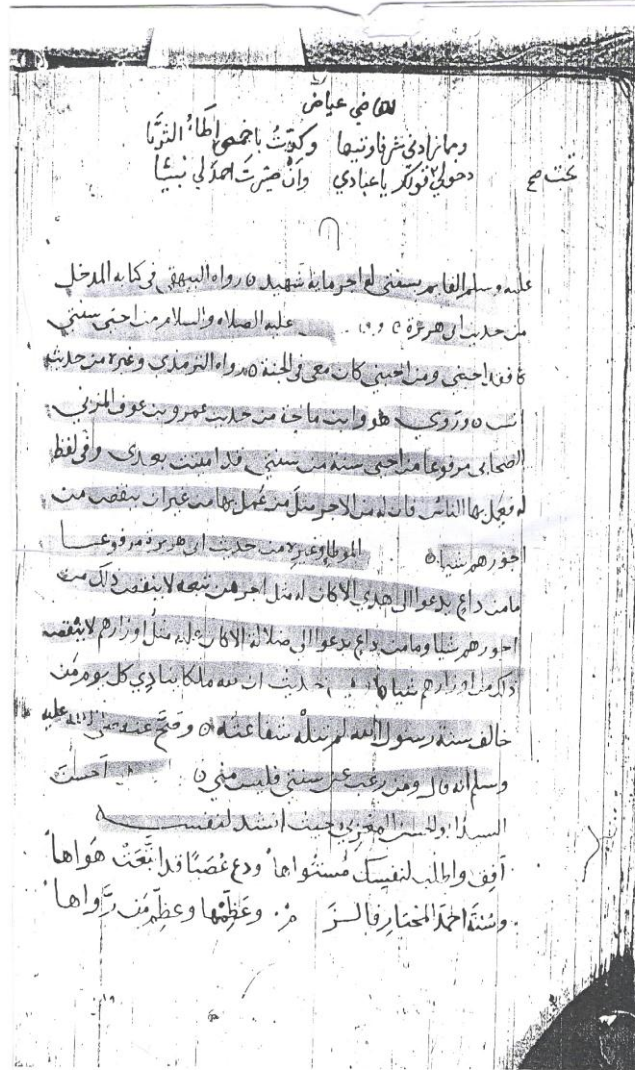 القاضي عياض
ومما زادني شرفا وتيها وكدت باخمصي اطأ الثريا
دخولي تحت قولك يا عبادي وان صيرت احمد لي نبيا
تحت صح
عليه وسلم القايم بسنتي له اجر ماية شهيد ٥ رواه البيهقي في كتابه المدخل
من حديث ابي هريرة ٥ عليه الصلاه والسلام من احيى سنتي
فقد احبني ومن احبني كان معي في الجنة ٥ رواه الترمذي وغيره من حديث
انس ٥ وروي هو وابن ماجة من حديث عمرو بن عوف المزني
الصحابي مرفوعا من احيى سنة من سنتي قد اميتت بعدي وفي لفظ
له فعمل بها الناس فان له من الاجر مثل من عمل بها من غير ان ينقص من
اجورهم شيا ٥ الموطا وغيره من حديث ابي هريرة مرفوعا
ما من داع يدعو الى هدي الا كان له مثل اجر من تبعه لا ينقص ذلك من
اجورهم شيا وما من داع يدعو الى ضلالة الا كان عليه مثل اوزارهم لا ينقص
ذلك من اوزارهم شيا ٥ حديث ان لله ملكا ينادي كل يوم من
خالف سنة رسول الله لم تنله شفاعته ٥ وصح عنه صلى الله عليه
وسلم انه قال ومن رغب عن سنتي فليس مني ٥ احسن
ابو الحسن المغربي حيث انشد لنفسه
افق واطلب لنفسك مستواها ودع عصبا قد اتبعت هواها
وسنة احمد المختار فالزم وعظمها وعظم من رواها